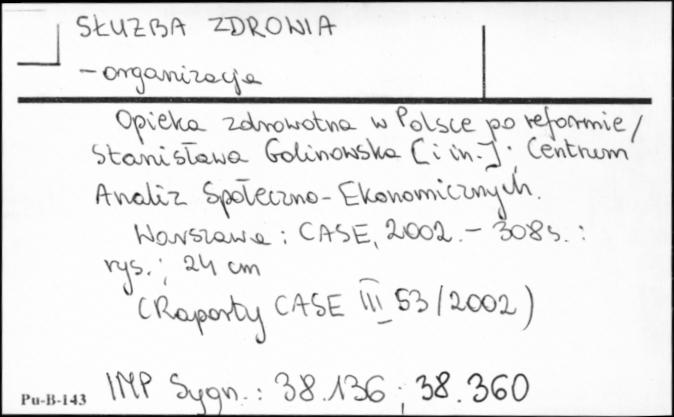 SŁUŻBA ZDROWIA
- organizacja
Opieka zdrowotna w Polsce po reformie /
Stanisława Golinowska [i in.] ; Centrum
Analiz Społeczno-Ekonomicznych.
Warszawa : CASE, 2002. - 308 s. :
rys. ; 24 cm
(Raporty CASE III 53/2002)
Pu-B-143 IMP Sygn. : 38.136 ; 38.360